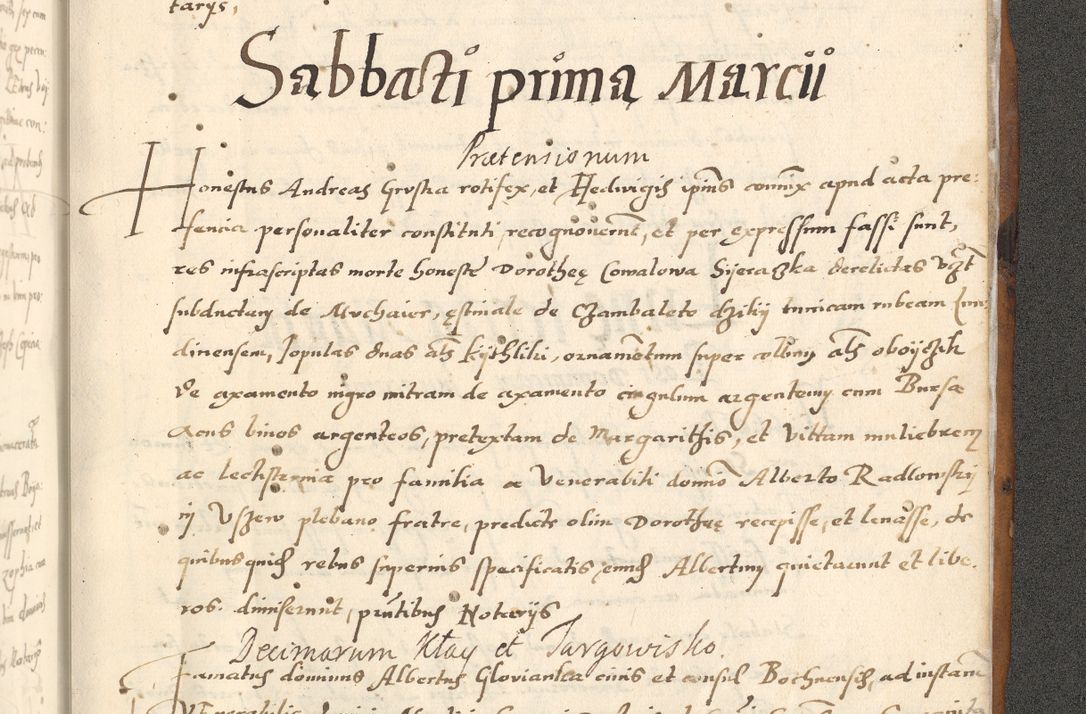 tarijs,
Sabbati prima Marcii
Prætensionum
Honestus Andreas Grvska rotifex, et Hedwigis ipius coniux apud acta pre:
sencia personaliter constituti, recognoverunt, et per expressum fassi sunt,
res infrascriptas morte honeste Dorotheę Cowalowa Sijeraczka derelictas vzt
subductam de Mvchaier, ęstivale de Czambaleto dzikij tunicam rubeam Lun
dinensem, Jopulas duas als kijthliki, ornamentum super collum als oboijczik
de axamento nigro mitram de axamento cingulum argenteum cum Bursa
Acus binos argenteos, pretextam de Margarithis, et Vittam muliebrem
ac lectisternia pro familia a Venerabili domino Alberto Radlowskij
in Vszew plebano fratre, predicte olim Dorotheę recepisse, et levasse, de
quibusquidem rebus superius specificatis, eundem Albertum quietarunt et libe.
ros. dimiserunt, pruntibus Notarijs
Decimarum Kłay et Targowisko.
Famatus dominus Albertus Glovianka civis et consul Bochnensis, ad instantiam